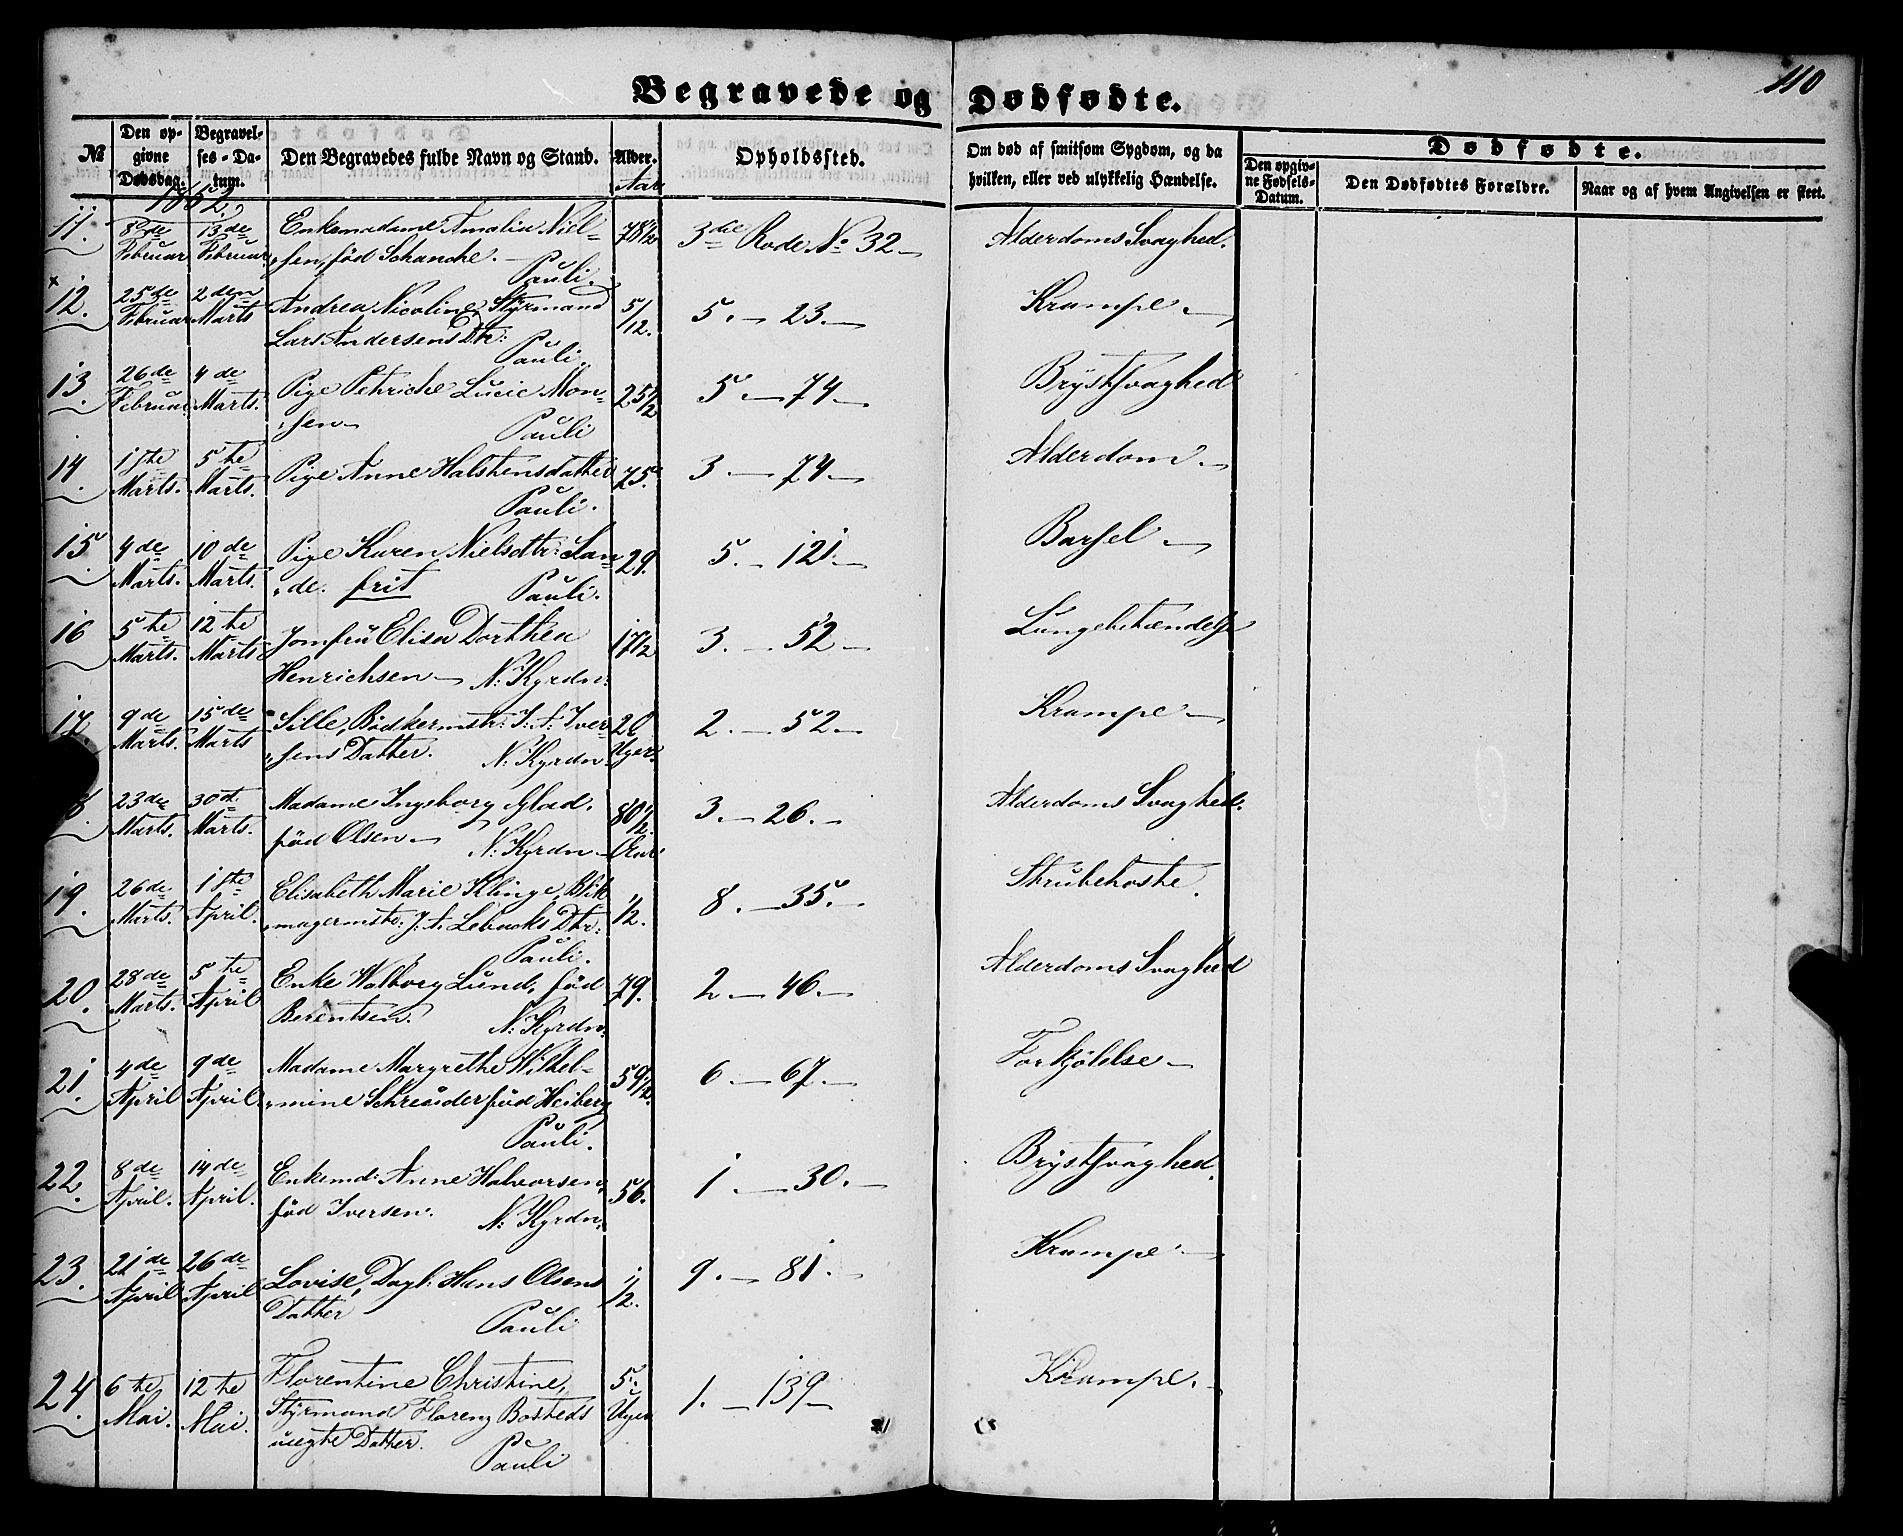 110
Begravede og Dødfødte.
№
Den opgivne Dødsdag.
Begravelses-Datum.
Den Begravedes fulde Navn og Stand.
Alder.
Aar
Opholdssted.
Om død af smitsom Sygdom, og da hvilken, eller ved ulykkelig Hændelse.
Dødfødte.
Den opgivne Fødsels-Datum.
Den Dødfødtes Forældre.
Naar og af hvem Angivelsen er skeet.
11. 8de Februar 13de Februar Enkemadame Amalia Niel- 78½ 3die Rode No 32 Alderdoms Svaghed.
sen, fød Schanche. Pauli.
12. 25de Februar 2den Marts Andrea Nicoline, Styrmand 5/12. 5. 23. Krampe
Lars Andersens Dtr: Pauli.
13. 26de Februar 4de Marts. Pige Petriche Lucie Mon- 25½ 5. 74 Brystsvaghed
sen Pauli
14. 1ste Marts. 5te Marts. Pige Anne Halstensdatter 75. 3. 74. Alderdom
Pauli.
15 4de Marts. 10de Marts. Pige Karen Nielsdtr: Lan- 29. 5. 121. Barsel
de. frit Pauli.
16 5te Marts. 12te Marts Jomfru Elisa Dorthea 17½ 3. 52 Lungebetændelse
Henrichsen N: Kyrdn:
17. 9de Marts. 15de Marts Sille, Bødkermstr: J: A: Iver- Uger. 2. 52. Krampe
sens Datter. N: Kyrdn
23de Marts. 30te Marts. Madame Ingeborg Glad. 80½. Aar 3. 26. Alderdoms Svaghed.
fød Olsen N: Kyrdn
19. 26de Marts. 1ste April. Elisabeth Marie Klinge, Blik- ½. 8. 35. Strubehoste.
magermstr: J. A. Lebachs Dtr. Pauli.
20. 28de Marts. 5te April Enke Walborg Lund, fød 79. 2. 46. Alderdoms Svaghed
Berentsen. N: Kyrdn.
21. 4de April 9de April. Madame Margrethe Wilhel- 59½. 6. 67. Forkjølelse
mine Schreuder fød Heiberg Pauli.
22. 8de April. 14de April. Enkemd: Anne Halvorsen, 56. 1 30. Brystsvaghed.
fød Iversen. N: Kyrdn.
23. 21de April 26de April Lovise, Dagl: Hans Olsens ½. 9. 81. Krampe
Datter Pauli
24. 6te Mai. 12te Mai. Florentine Christine, 5. Uger 1. 139 Krampe.
Styrmand Florenz Bosteds
uægte Datter. Pauli